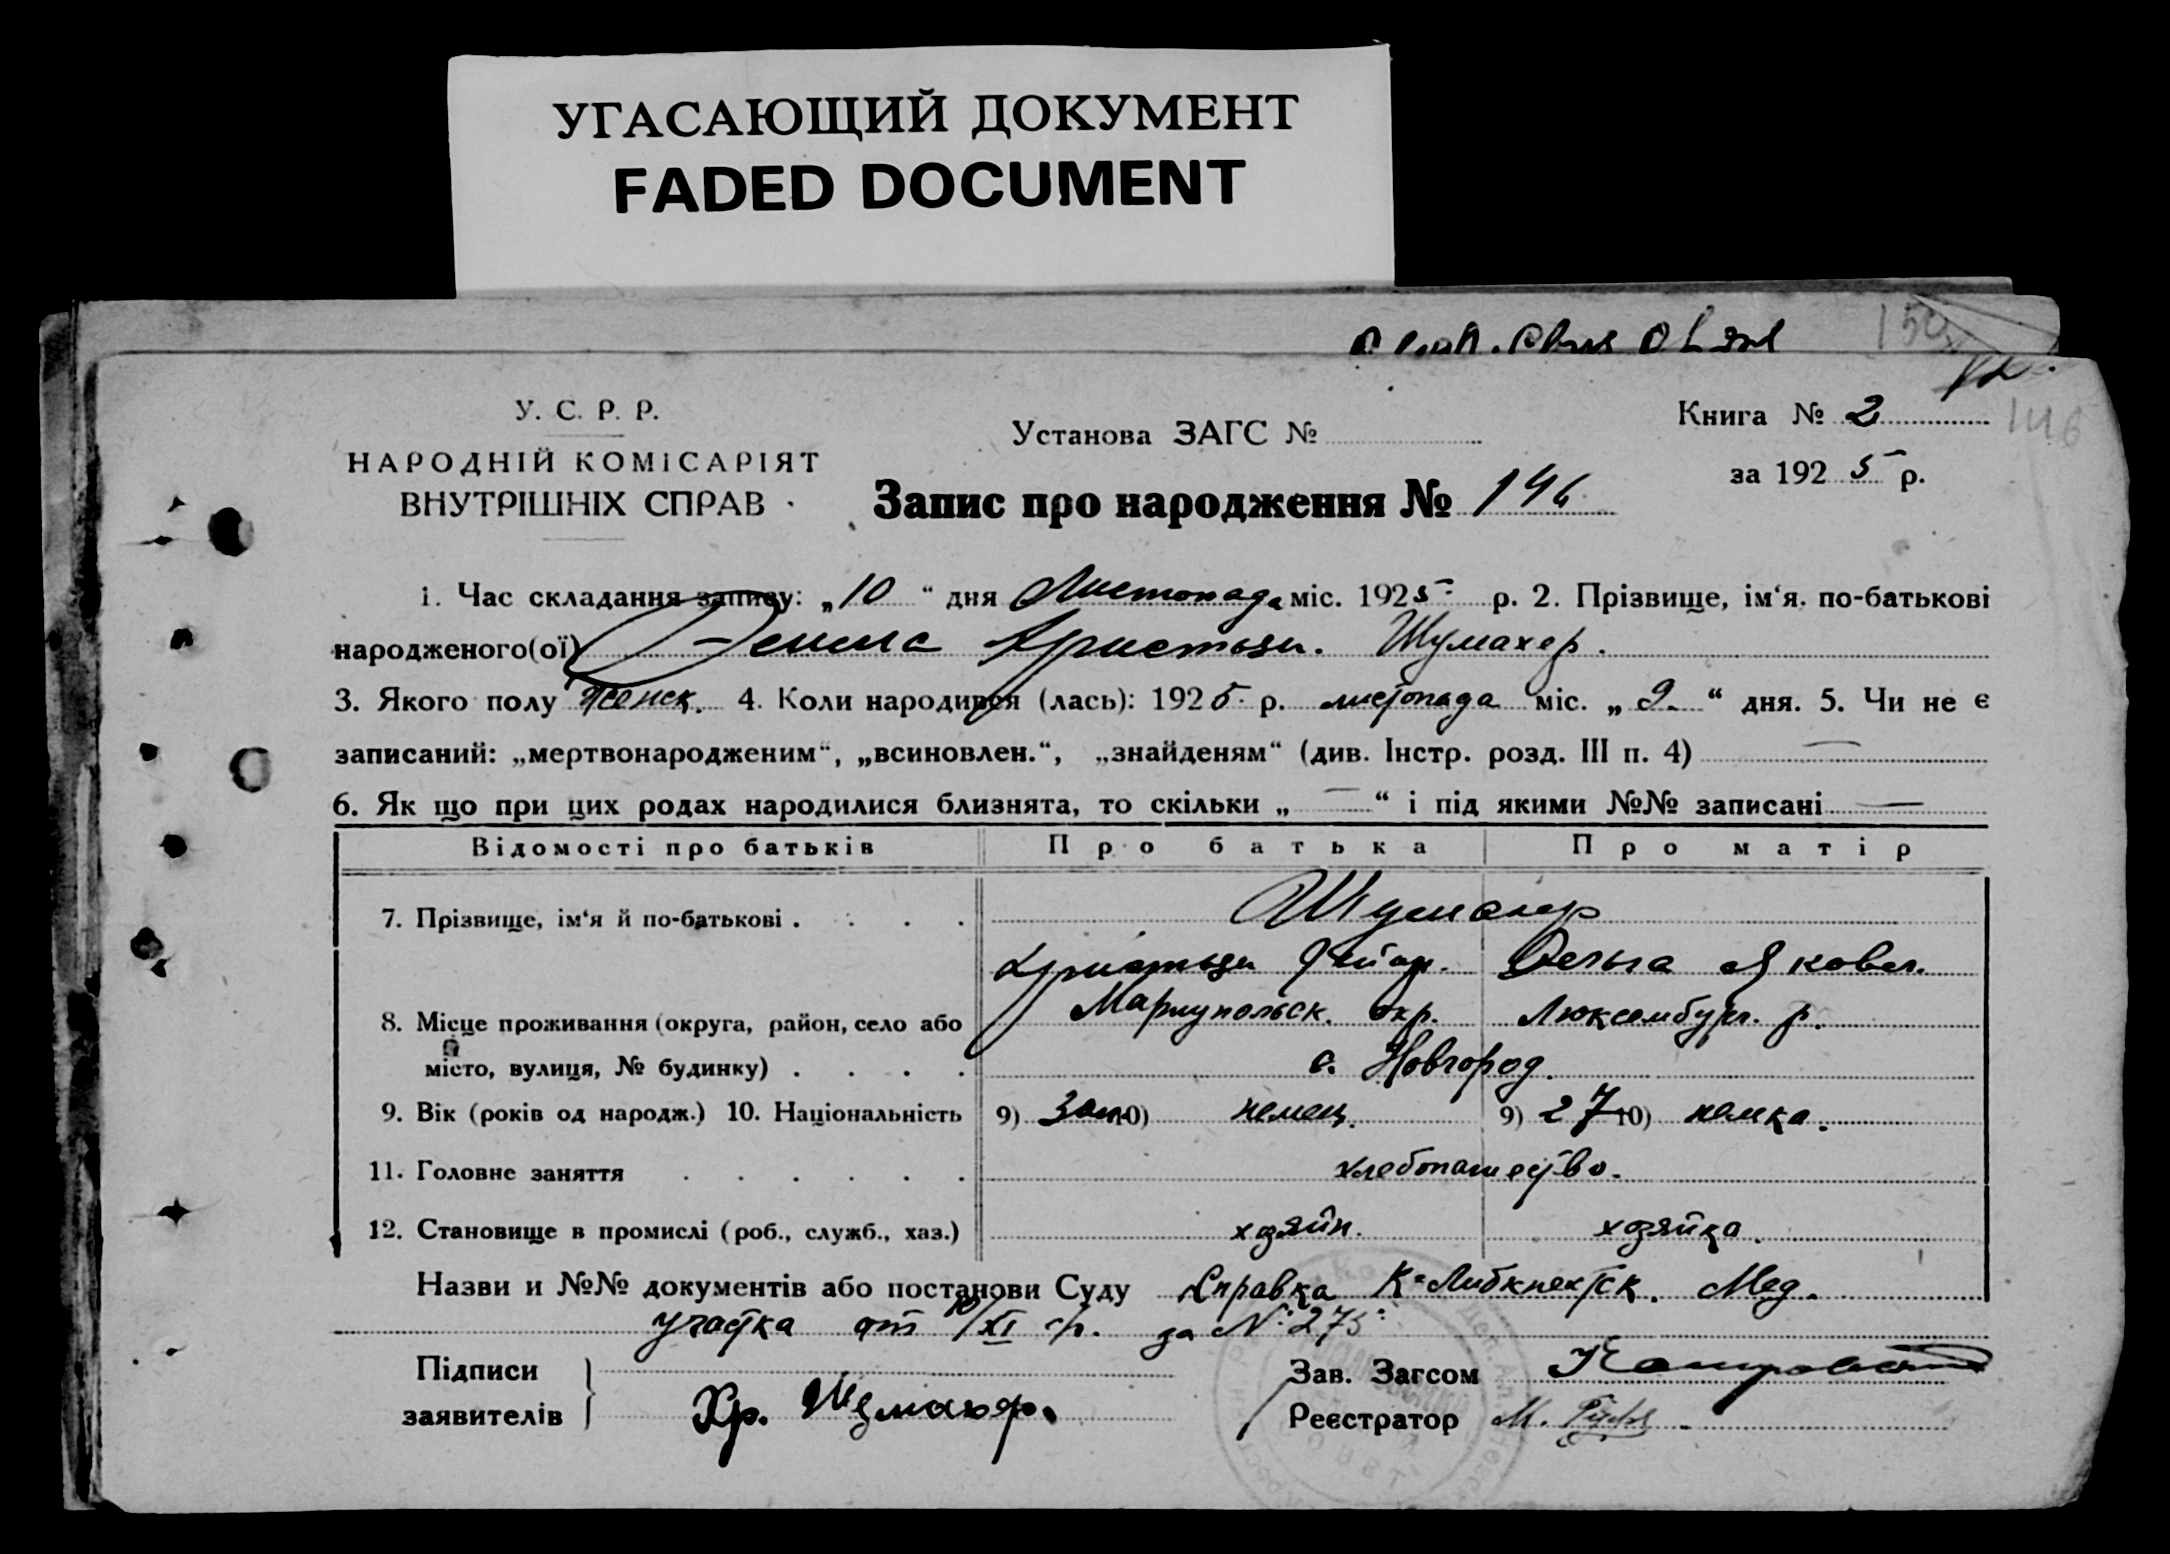 УГАСАЮЩИЙ ДОКУМЕНТ
FADED DOCUMENT
У. С. Р. Р.
НАРОДНІЙ КОМІСАРІЯТ
ВНУТРІШНІХ СПРАВ
Установа ЗАГС №
Запис про народження № 146
Книга № 2
146
за 1925 р.
1. Час складання запису: „10“ дня Листопада міс. 1925 р. 2. Прізвище, ім‘я, по-батькові
народженого(ої) Христьян. Шумахер.
3. Якого полу женск. 4. Коли народився (лась): 1925 р. листопада міс. „2“ дня. 5. Чи не є
записаний: „мертвонародженим“, „всиновлен.“, „знайденям“ (див. Інстр. розд. III п. 4) —
6. Як що при цих родах народилися близнята, то скільки „—“ і під якими №№ записані —
Відомості про батьків Про батька Про матір
7. Прізвище, ім‘я й по-батькові . . . . Шумахер
Христьян Яковл.
8. Місце проживання (округа, район, село або Мариупольск. окр. Люксембург. р.
місто, вулиця, № будинку) . . . . с. Новгород.
9. Вік (років од народж.) 10. Національність 9) 10) немец. 9) 27 10) немка.
11. Головне заняття . . . . . . хлебопашество.
12. Становище в промислі (роб., служб., хаз.) хозяйн. хозяйка.
Назви и №№ документів або постанови Суду Справка К-Либкнехтск. Мед.
участка от 10/XI с/г. за № 275
Підписи
заявителів Хр. Шумахер.
Зав. Загсом
Реєстратор М.